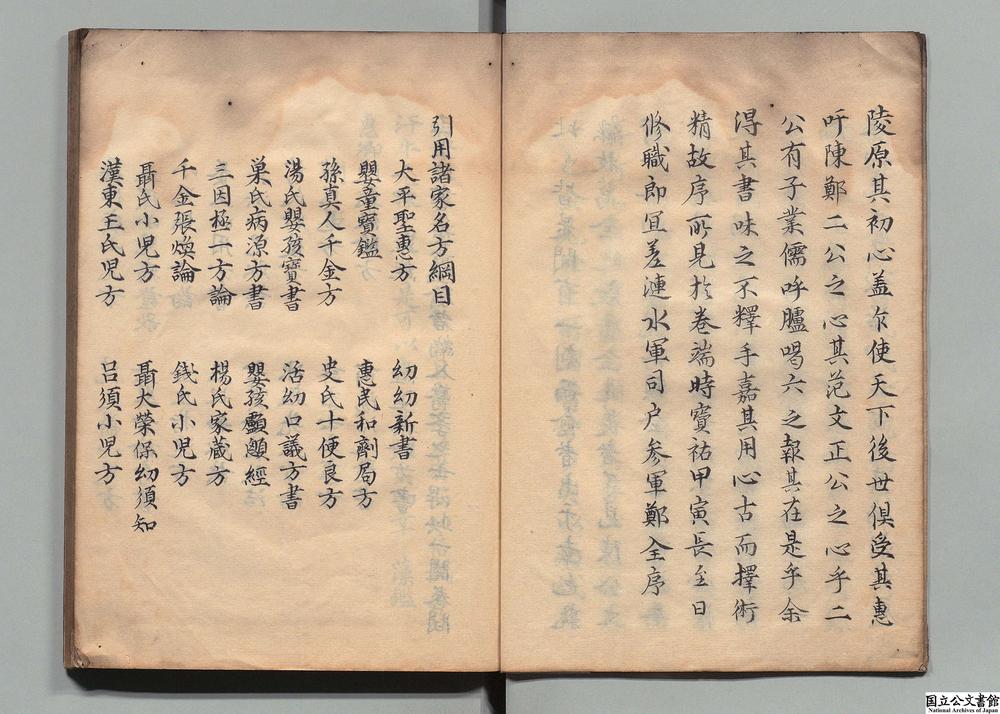 陵原其初心盖欤使天下後世俱受其惠
吁陳鄭二公之心其范文正公之心乎二
公有子業儒呼臚喝六之報其在是乎余
得其書味之不釋手嘉其用心古而擇術
精故序所見於卷端時寶祐甲寅長至日
修職郎冝差漣水軍司户参軍鄭全序
引用諸家名方綱目
大平聖惠方
幼幼新書
嬰童寶鑑
惠民和劑局方
孫真人千金方
史氏十便良方
湯氏嬰孩寶書
活幼口議方書
巣氏病源方書
嬰孩顱顖經
三因極一方論
楊氏家蔵方
千金張煥論
錢氏小児方
聶氏小児方
聶大榮保幼須知
漢東王氏児方
吕須小児方
国立公文書館
National Archives of Japan